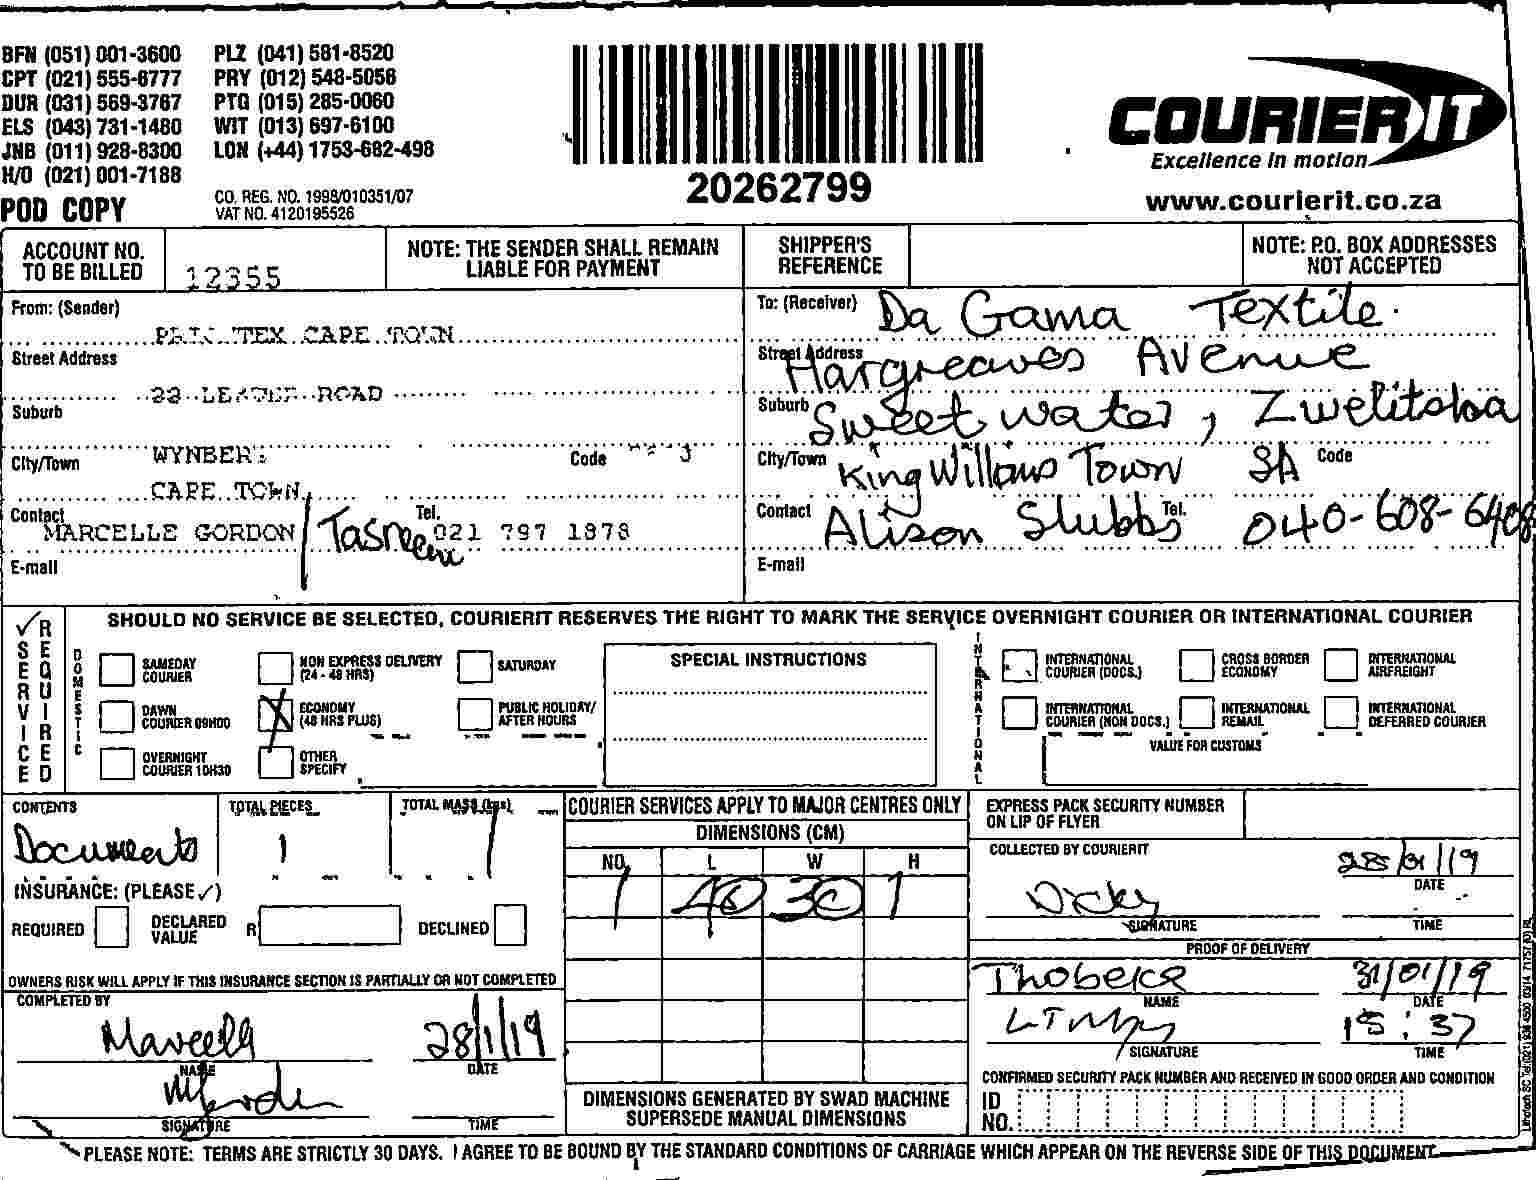 BFN (051) 001-3600 PLZ (041) 581-8520
CPT (021) 555-6777 PRY (012) 548-5056
DUR (031) 569-3767 PTG (015) 285-0060
ELS (043) 731-1480 WIT (013) 697-6100
JNB (011) 928-8300 LON (+44) 1753-682-498
H/O (021) 001-7188
POD COPY
CO. REG. NO. 1998/010351/07
VAT NO. 4120195526
20262799
COURIERIT
Excellence in motion
www.courierit.co.za
ACCOUNT NO.
TO BE BILLED
12355
NOTE: THE SENDER SHALL REMAIN
LIABLE FOR PAYMENT
SHIPPER'S
REFERENCE
NOTE: P.O. BOX ADDRESSES
NOT ACCEPTED
From: (Sender)
TEX CAPE TOWN
Street Address
ROAD
Suburb
WYNBERG
City/Town
Code
CAPE TOWN
Contact
MARCELLE GORDON / Tasneem
Tel.
021 797 1878
E-mail
To: (Receiver) Da Gama Textile.
Street Address Hargreaves Avenue
Suburb Sweet water, Zwelitsha
City/Town King Willams Town SA Code
Contact Alison Stubbs Tel. 040-608-6408
E-mail
✓ SERVICE REQUIRED
SHOULD NO SERVICE BE SELECTED, COURIERIT RESERVES THE RIGHT TO MARK THE SERVICE OVERNIGHT COURIER OR INTERNATIONAL COURIER
DOMESTIC
SAMEDAY
COURIER
NON EXPRESS DELIVERY
(24 - 48 HRS)
SATURDAY
DAWN
COURIER 09H00
X ECONOMY
(48 HRS PLUS)
PUBLIC HOLIDAY/
AFTER HOURS
OVERNIGHT
COURIER 10H30
OTHER
SPECIFY
SPECIAL INSTRUCTIONS
INTERNATIONAL
INTERNATIONAL
COURIER (DOCS.)
CROSS BORDER
ECONOMY
INTERNATIONAL
AIRFREIGHT
INTERNATIONAL
COURIER (NON DOCS.)
INTERNATIONAL
REMAIL
INTERNATIONAL
DEFERRED COURIER
VALUE FOR CUSTOMS
CONTENTS
Documents
TOTAL PIECES
1
TOTAL MASS (kgs)
1
INSURANCE: (PLEASE ✓)
REQUIRED
DECLARED
VALUE
R
DECLINED
OWNERS RISK WILL APPLY IF THIS INSURANCE SECTION IS PARTIALLY OR NOT COMPLETED
COMPLETED BY
Marcelle
NAME
28/1/19
DATE
SIGNATURE
TIME
COURIER SERVICES APPLY TO MAJOR CENTRES ONLY
DIMENSIONS (CM)
NO. L W H
1 40 30 1
DIMENSIONS GENERATED BY SWAD MACHINE
SUPERSEDE MANUAL DIMENSIONS
EXPRESS PACK SECURITY NUMBER
ON LIP OF FLYER
COLLECTED BY COURIERIT
Dicky
SIGNATURE
28/01/19
DATE
TIME
PROOF OF DELIVERY
Thobeka
NAME
31/01/19
DATE
SIGNATURE
15:37
TIME
CONFIRMED SECURITY PACK NUMBER AND RECEIVED IN GOOD ORDER AND CONDITION
ID
NO.
PLEASE NOTE: TERMS ARE STRICTLY 30 DAYS. I AGREE TO BE BOUND BY THE STANDARD CONDITIONS OF CARRIAGE WHICH APPEAR ON THE REVERSE SIDE OF THIS DOCUMENT